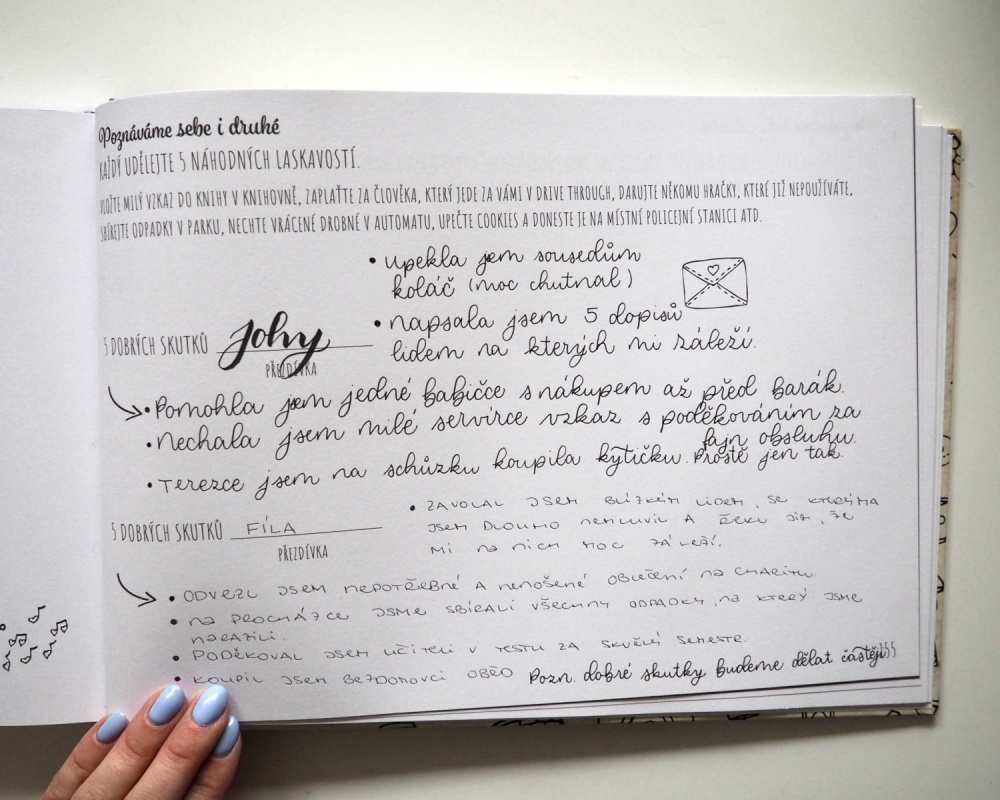 Poznáváme sebe i druhé
KAŽDÝ UDĚLEJTE 5 NÁHODNÝCH LASKAVOSTÍ.
VLOŽTE MILÝ VZKAZ DO KNIHY V KNIHOVNĚ, ZAPLAŤTE ZA ČLOVĚKA, KTERÝ JEDE ZA VÁMI V DRIVE THROUGH, DARUJTE NĚKOMU HRAČKY, KTERÉ JIŽ NEPOUŽÍVÁTE,
SBÍREJTE ODPADKY V PARKU, NECHTE VRÁCENÉ DROBNÉ V AUTOMATU, UPEČTE COOKIES A DONESTE JE NA MÍSTNÍ POLICEJNÍ STANICI ATD.
• upekla jsem sousedům
koláč (moc chutnal)
• napsala jsem 5 dopisů
lidem na kterých mi záleží.
5 DOBRÝCH SKUTKŮ Johy
PŘEZDÍVKA
• Pomohla jsem jedné babičce s nákupem až před barák.
• Nechala jsem milé servírce vzkaz s poděkováním za
fajn obsluhu.
• Terezce jsem na schůzku koupila kytičku. Prostě jen tak.
5 DOBRÝCH SKUTKŮ FÍLA
PŘEZDÍVKA
• ZAVOLAL JSEM BLÍZKÝM LIDEM, SE KTERÝMA
JSEM DLOUHO NEMLUVIL A ŘEKL JIM, ŽE
MI NA NICH MOC ZÁLEŽÍ.
• ODVEZL JSEM NEPOTŘEBNÉ A NENOŠENÉ OBLEČENÍ NA CHARITU.
• NA PROCHÁZCE JSME SBÍRALI VŠECHNY ODPADKY, NA KTERÝ JSME
NARAZILI.
• PODĚKOVAL JSEM UČITELI V TESTU ZA SKVĚLÝ SEMESTR.
• KOUPIL JSEM BEZDOMOVCI OBĚD
Pozn. dobré skutky budeme dělat častěji
155